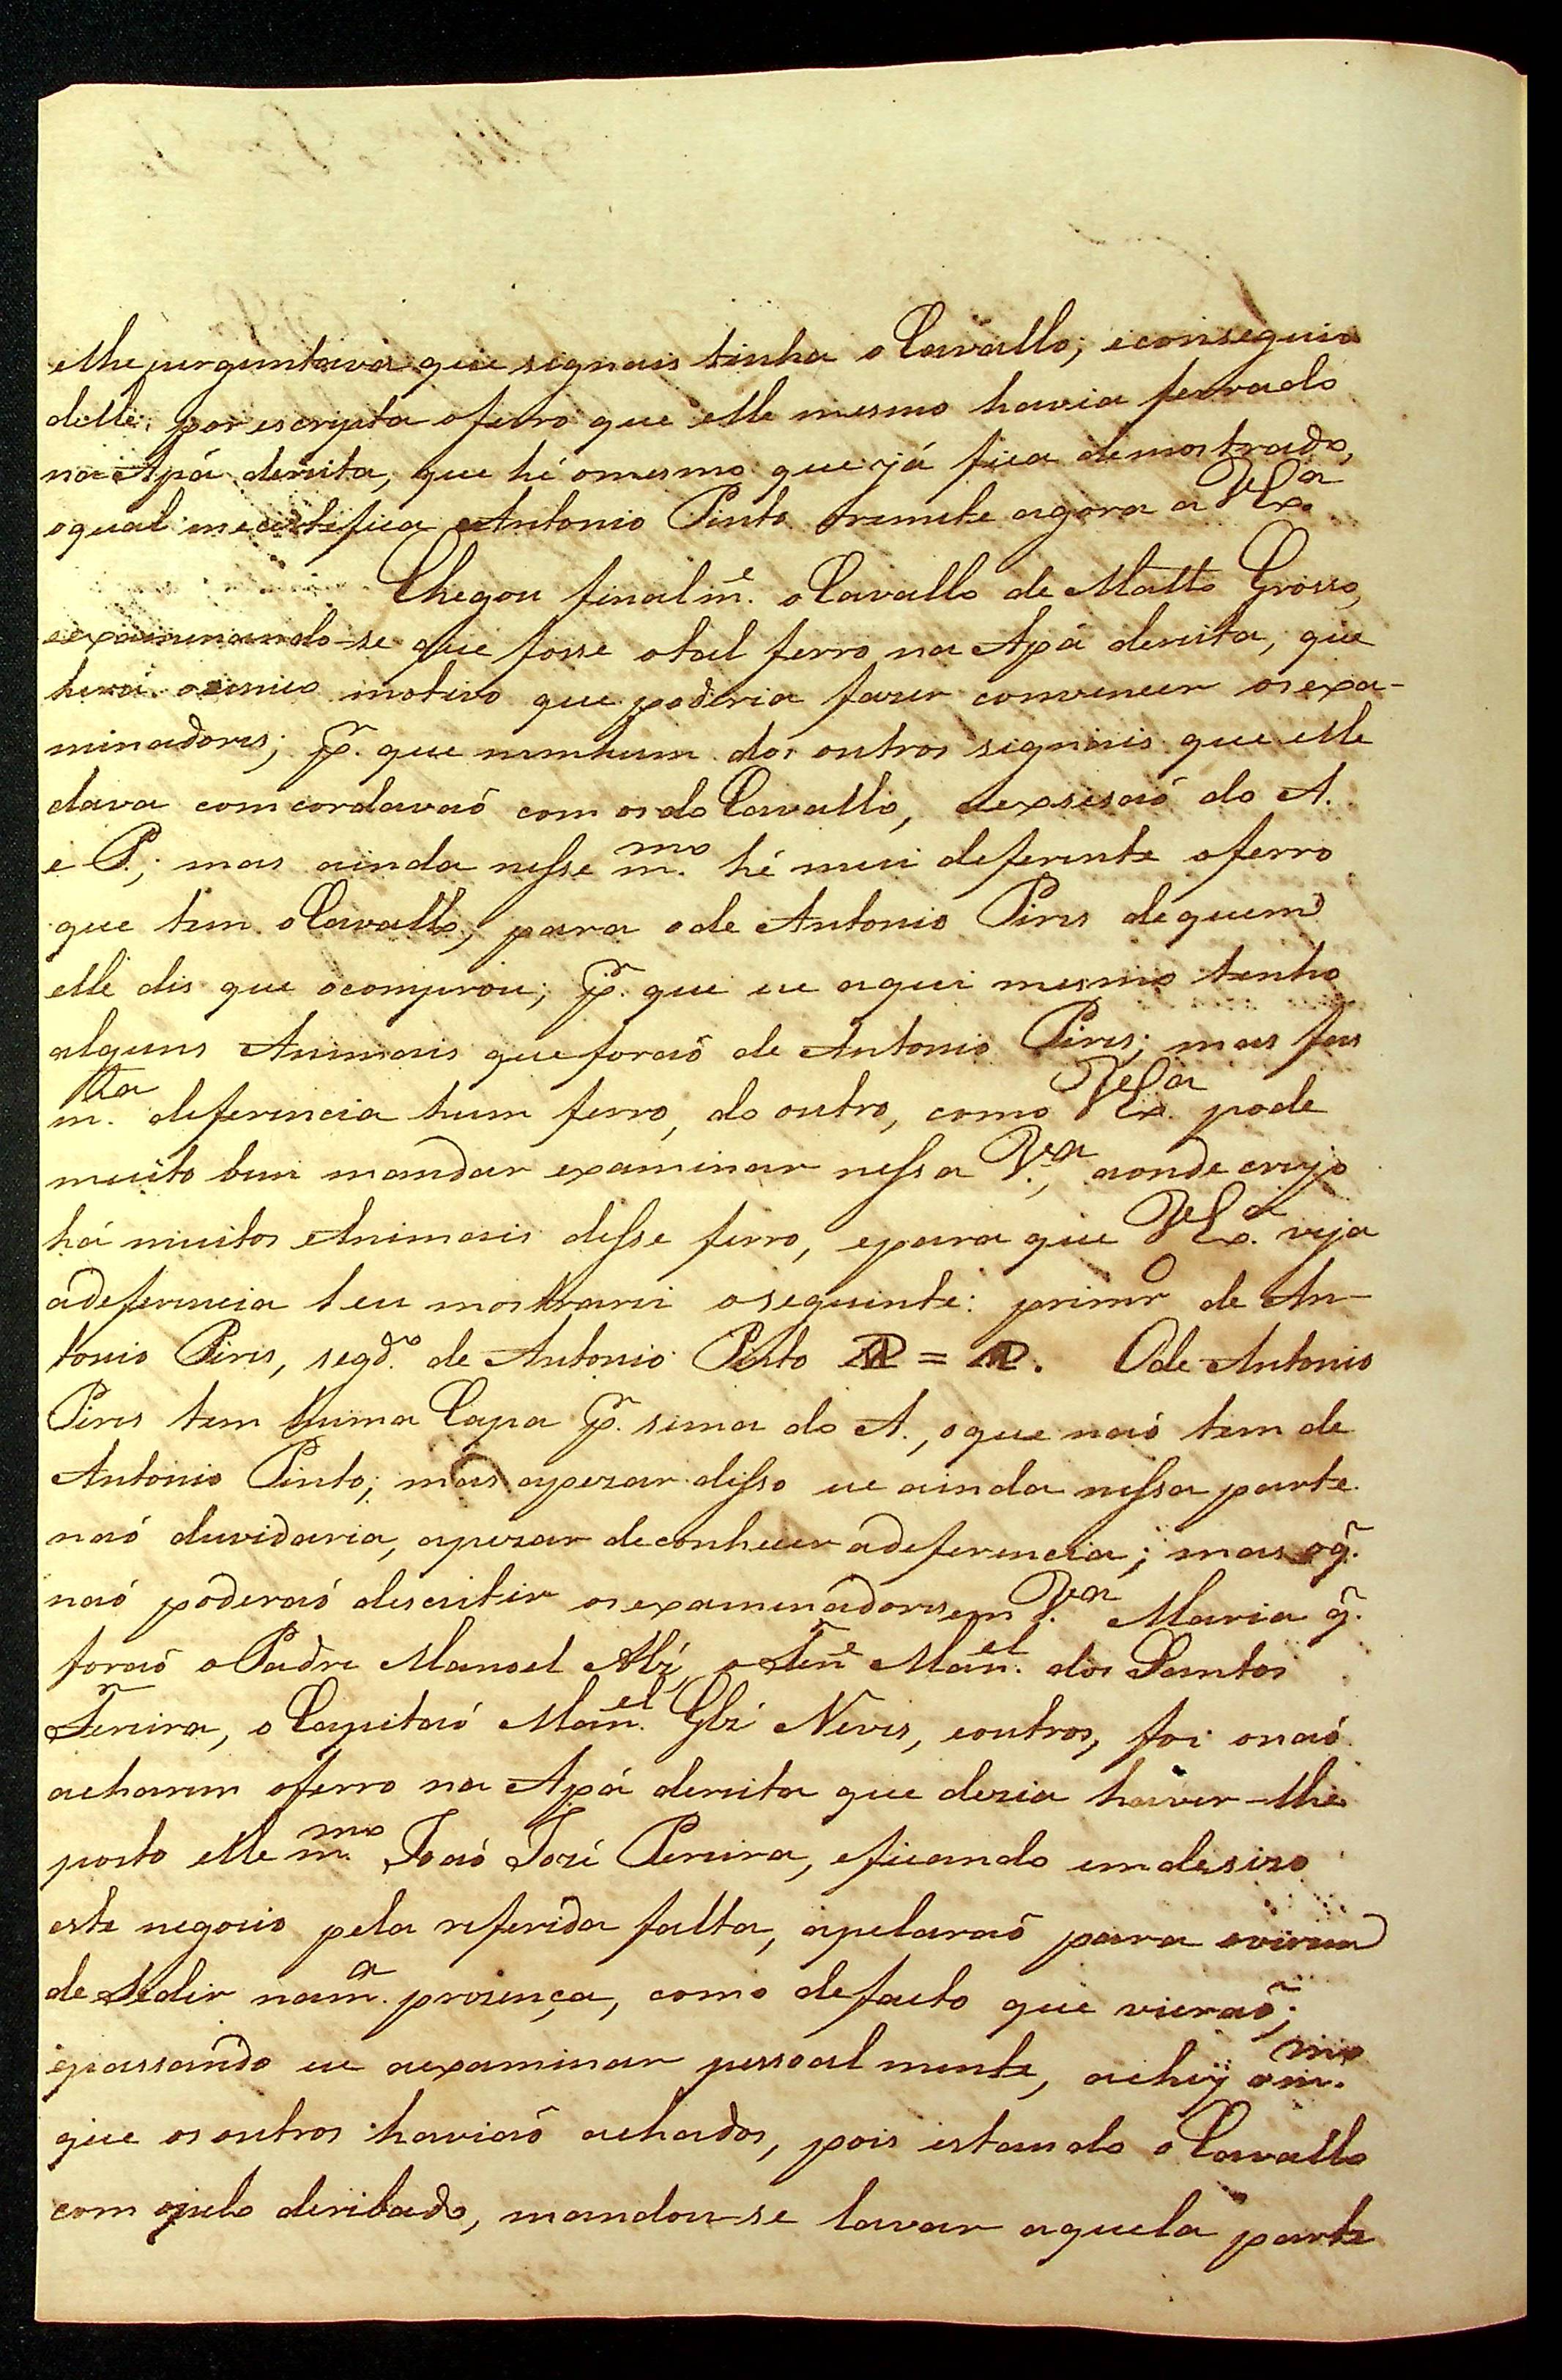 elhe perguntava que signais tinha o Cavallo, e conseguio
delle por escripta o ferro que elle mesmo havia ferrado
na Apá dereita, que hé o mesmo que já fica demostrado,
o qual me certefica Antonio Pinto tremete agora a V Ex.ª
Chegou finalm.e o Cavallo de Matto Grosso,
examinando-se que fosse o tal ferro na Apá dereita, que
hera o unico motivo que poderia fazer convencer os exa-
minadores; p.r que nemhum dos outros signais que elle
dava comcordavaó com os do Cavallo, a exsesaó do A.
e P.; mas ainda nesse m.mo hé mui deferente o ferro
que tem o Cavallo, para o de Antonio Pires de quem
elle dis que o comprou; p.r que eu aqui mesmo tenho
alguns Animais que foraó de Antonio Pires; mas fas
m.ta deferencia hum ferro, do outro, como V Ex.ª pode
muito bem mandar examinar nessa V.ª, aonde creyo
há muitos Animais desse ferro, e para que V Ex.ª veja
a deferencia l eu mostrarei o seguinte: primr.o de An-
tonio Pires, segd.o de Antonio Pinto AP = AP. O de Antonio
Pires tem huma Capa p.r sima do A., o que naó tem de
Antonio Pinto; mas apezar disso eu ainda nessa parte
naó duvidaria, apezar de conhecer a deferencia; mas o q.
naó poderaó discutir os examinadores em V.ª Maria q.
foraó o Padre Manoel Alz', o Ten.e Man.el dos Santos
Ferreira, o Capitaó Man.el Glz' Neves, e outros, foi o naó
acharem o ferro na Apá dereita que dezia haver-lhe
posto elle m.mo Joaó Jozé Pereira, e ficando emdesizo
este negocio pela referida falta, apelaraó para o virem
desedir na m.a prezença, como de facto que vieraó;
e passando eu a examinar pessoal mente, achey o m.mo
que os outros haviaó achados, pois estando o Cavallo
com o pelo deribado, mandou-se lavar aquela parte